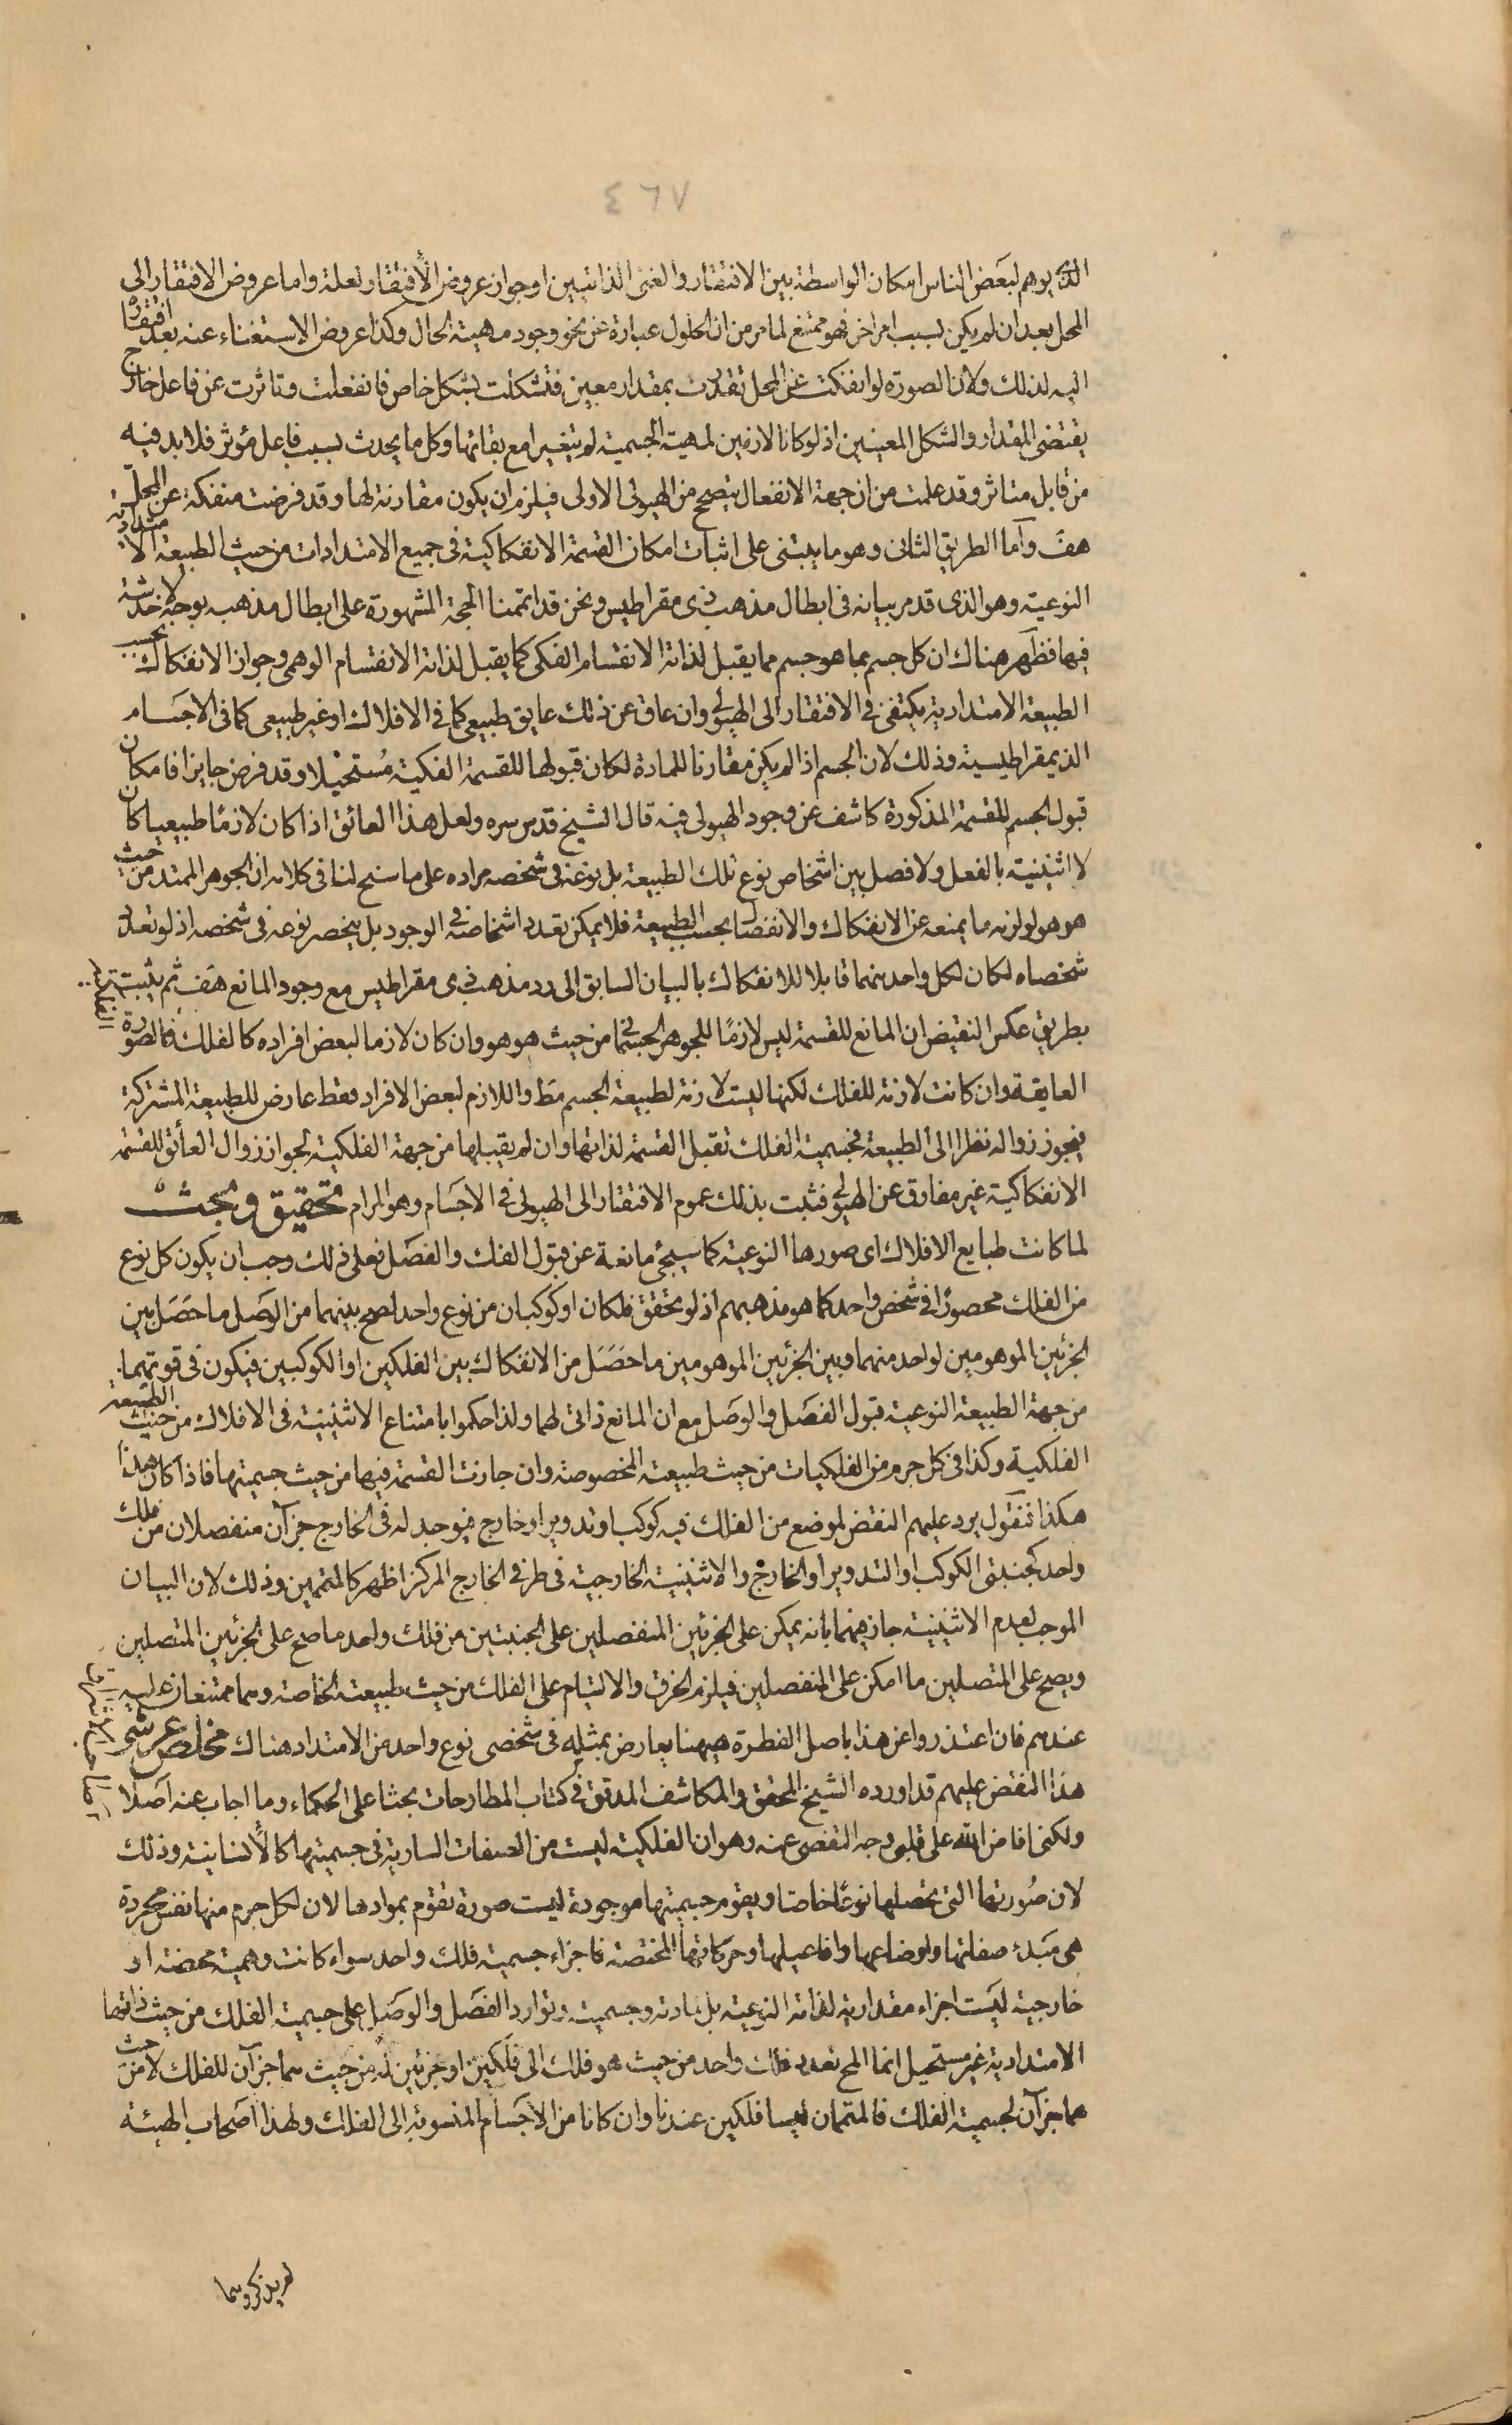 ٤٦٧
الذى يوهم لبعض الناس امكان الواسطة بين الافتقار والغنى الذاتيين او جواز عروض الافتقار لعلة واما عروض الافتقار الى
المحل بعد ان لم يكن بسبب امر اخر فهو ممتنع لما مر من ان الحلول عبارة عن نحو وجود مهية الحال وكذا عروض الاستغناء عنه بعد افتقاره
اليه لذلك ولان الصورة لو انفكت عن المحل تقدرت بمقدار معين فتشكلت بشكل خاص فانفعلت وتاثرت عن فاعل خارج
يقتضى المقدار والشكل المعينين اذ لو كانا لازمين لمهية الجسمية لم يتغيرا مع بقائها وكل ما يحدث بسبب فاعل مؤثر فلا بد فيه
من قابل متاثر وقد علمت من ان جهة الانفعال يتصحح من الهيولى الاولى فيلزم ان يكون مقارنة لها وقد فرضت منفكة عن المحل
هف وآما الطريق الثانى وهو ما يبتنى على اثبات امكان القسمة الانفكاكية فى جميع الامتدادات من حيث الطبيعة الامتدادية
النوعية وهو الذى قد مر بيانه فى ابطال مذهب ذى مقراطيس ونحن قد اتممنا الحجة المشهورة على ابطال مذهبه بوجه لا خدشة
فيها فظهر هناك ان كل جسم بما هو جسم مما يقبل لذاته الانقسام الفكى كما يقبل لذاته الانقسام الوهمى وجواز الانفكاك بحسب
الطبيعة الامتدادية يكتفى فى الافتقار الى الهيولى وان عاق عن ذلك عايق طبيعى كما فى الافلاك او غير طبيعى كما فى الاجسام
الذيمقراطيسية وذلك لان الجسم اذا لم يكن مقارنا للمادة لكان قبولها للقسمة الفكية مستحيلا وقد فرض جايزا فامكان
قبول الجسم للقسمة المذكورة كاشف عن وجود الهيولى فيه قال الشيخ قدس سره ولعل هذا العائق اذا كان لازمًا طبيعيا كان
لا اثنينية بالفعل ولا فصل بين اشخاص نوع تلك الطبيعة بل نوعه فى شخصه مراده على ما سنح لنا فى كلامه ان الجوهر الممتد من حيث
هو هو لو لزمه ما يمنعه عن الانفكاك والانفصال بحسب الطبيعة فلا يمكن تعدد اشخاصه فى الوجود بل ينحصر نوعه فى شخصه اذ لو تعدد
شخصاه لكان لكل واحد منهما قابلا للانفكاك بالبيان السابق الى رد مذهب ذى مقراطيس مع وجود المانع هف ثم يثبت
بطريق عكس النقيض ان المانع للقسمة ليس لازمًا للجوهر الجسمانى من حيث هو هو وان كان لازما لبعض افراده كالفلك فالصورة الفلكية
العايقة وان كانت لازمة للفلك لكنها ليست لازمة لطبيعة الجسم مط واللازم لبعض الافراد فقط عارض للطبيعة المشتركة
فيجوز زواله نظرا الى الطبيعة فجسمية الفلك تقبل القسمة لذاتها وان لم يقبلها من جهة الفلكية لجواز زوال العائق للقسمة
الانفكاكية غير مفارق عن الهيولى فثبت بذلك عموم الافتقار الى الهيولى فى الاجسام وهو المرام تحقيق وبحث
لما كانت طبايع الافلاك اى صورها النوعية كما سيجئ مانعة عن قبول الفك والفصل فعلى ذلك وجب ان يكون كل نوع
من الفلك محصورًا فى شخص واحد كما هو مذهبهم اذ لو تحقق فلكان او كوكبان من نوع واحد لصح بينهما من الوصل ما حصل بين
الجزئين الموهومين لواحد منهما وبين الجزئين الموهومين ما حصل من الانفكاك بين الفلكين او الكوكبين فيكون فى قوتهما
من جهة الطبيعة النوعية قبول الفصل والوصل مع ان المانع ذاتى لهما ولذا حكموا بامتناع الاثنينية فى الافلاك من حيث الطبيعة
الفلكية وكذا فى كل جرم من الفلكيات من حيث طبيعته المخصوصة وان جازت القسمة فيها من حيث جسميتها فاذا كان هذا
هكذا فنقول يرد عليهم النقض لموضع من الفلك فيه كوكب او تدوير او خارج فيوجد له فى الخارج جزآن منفصلان من فلك
واحد كجنبتى الكوكب او التدوير او الخارج والاثنينية الخارجية فى طرفى الخارج المركز اظهر كالمتممين وذلك لان البيان
الموجب لعدم الاثنينية جاز فيهما بانه يمكن على الجزئين المنفصلين على الجنبتين من فلك واحد ما صح على الجزئين المتصلين
ويصح على المتصلين ما امكن على المنفصلين فيلزم الخرق والالتيام على الفلك من حيث طبيعته الخاصة وهما ممتنعان عليه
عندهم فان اعتذروا عن هذا باصل الفطرة هيهنا يعارض بمثله فى شخصى نوع واحد من الامتداد هناك مخلص عرشى
هذا النقض عليهم قد اورده الشيخ المحقق والمكاشف المدقق فى كتاب المطارحات بحثا على الحكماء وما اجاب عنه اصلا
ولكنى افاض الله على قلبى وجه التفصى عنه وهو ان الفلكية ليست من الصفات السارية فى جسميتها كالانسانية وذلك
لان صورتها التى تحصلها نوعًا خاصا ويقوم جسميتها موجودة ليست صورة تقوم بموادها لان لكل جرم منها نفس مجردة
هى مبدء صفاتها واوضاعها وافاعيلها وحركاتها المختصة فاجزاء جسمية فلك واحد سواء كانت وهمية محضة او
خارجية ليست اجزاء مقدارية لذاته النوعية بل لمادته وجسميته وتوارد الفصل والوصل على جسمية الفلك من حيث ذاتها
الامتدادية غير مستحيل انما المح تعدد فلك واحد من حيث هو فلك الى فلكين او جزئين له من حيث هما جزآن للفلك لا من حيث
هما جزآن لجسمية الفلك فالمتممان ليسا فلكين عندنا وان كانا من الاجسام المنسوبة الى الفلك ولهذا اصحاب الهيئة
لم يذكروهما